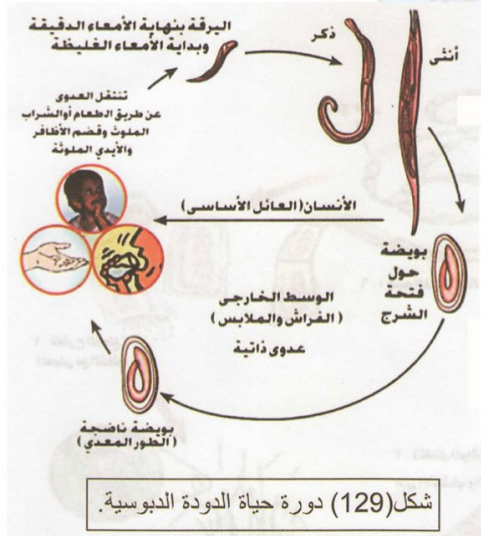 اليرقة بنهاية الأمعاء الدقيقة
وبداية الأمعاء الغليظة
ذكر
أنثى
تنتقل العدوى
عن طريق الطعام أوالشراب
الملوث وقضم الأظافر
والأيدي الملوثة
الأنسان (العائل الأساسى)
بويضة
حول
فتحة
الشرج
الوسط الخارجى
(الفراش والملابس)
عدوى ذاتية
بويضة ناضجة
(الطور المعدي)
شكل(129) دورة حياة الدودة الدبوسية.